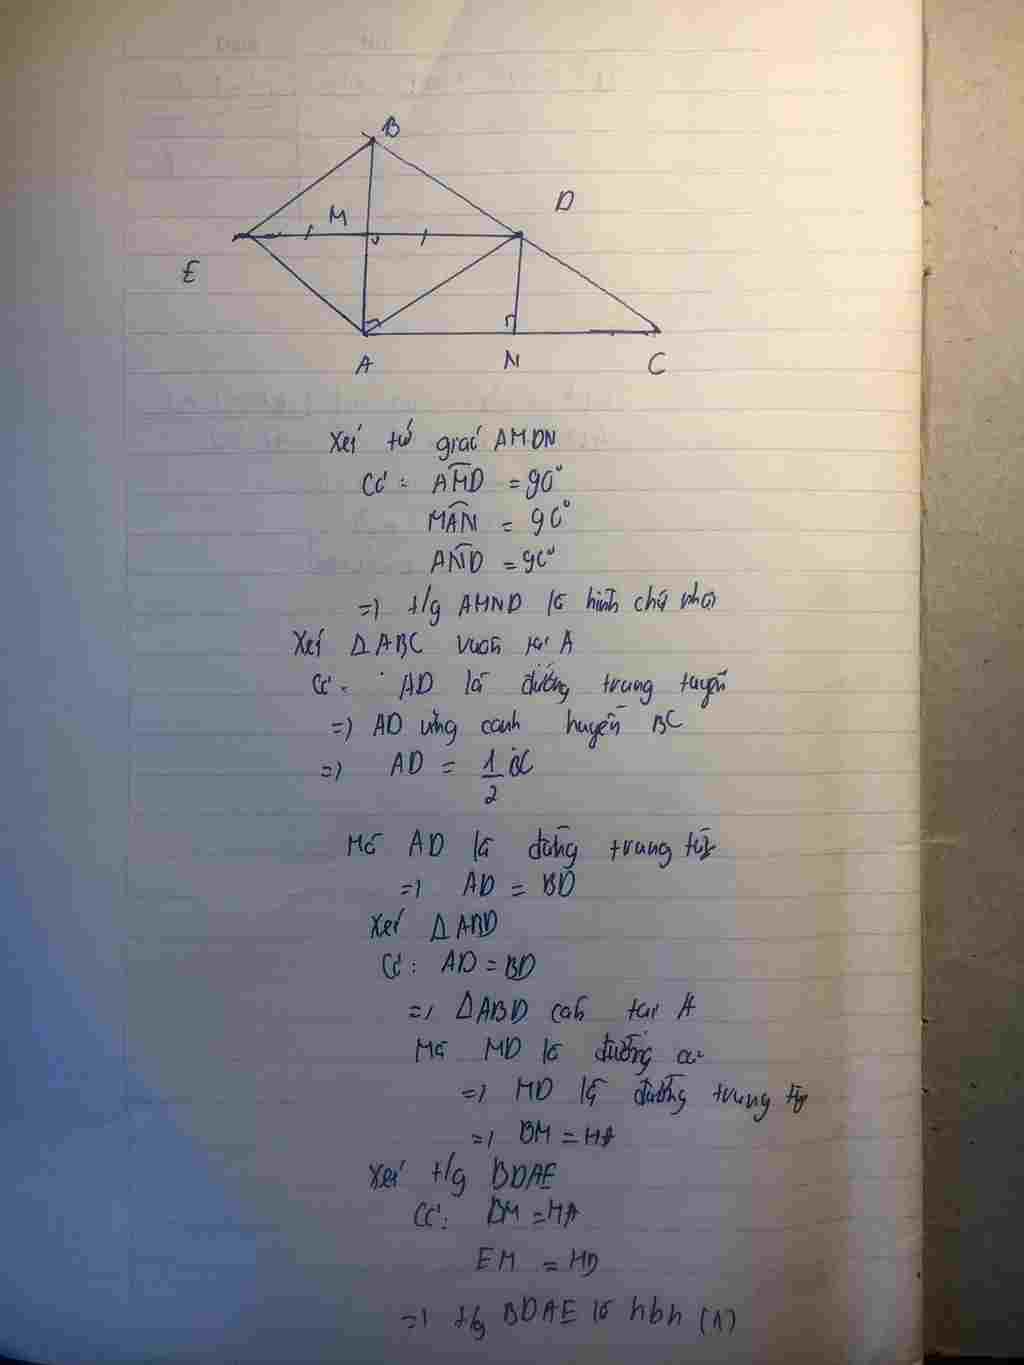 B
M
D
E
A
N
C
Xét tứ giác AMDN
Có: AMD = 90°
MAN = 90°
AND = 90°
=> t/g AMND là hình chữ nhật
Xét ΔABC vuôn tại A
Có: AD là đường trung tuyến
=> AD ứng cạnh huyền BC
=> AD = 1/2 BC
Mà AD là đường trung
=> AD = BD
Xét ΔABD
Có: AD = BD
=> ΔABD cân tại A
Mà MD là đường cao
=> MD là đường trung
=> BM = MA
Xét t/g BDAE
Có: BM = MA
EM = MD
=> t/g BDAE là hbh (1)